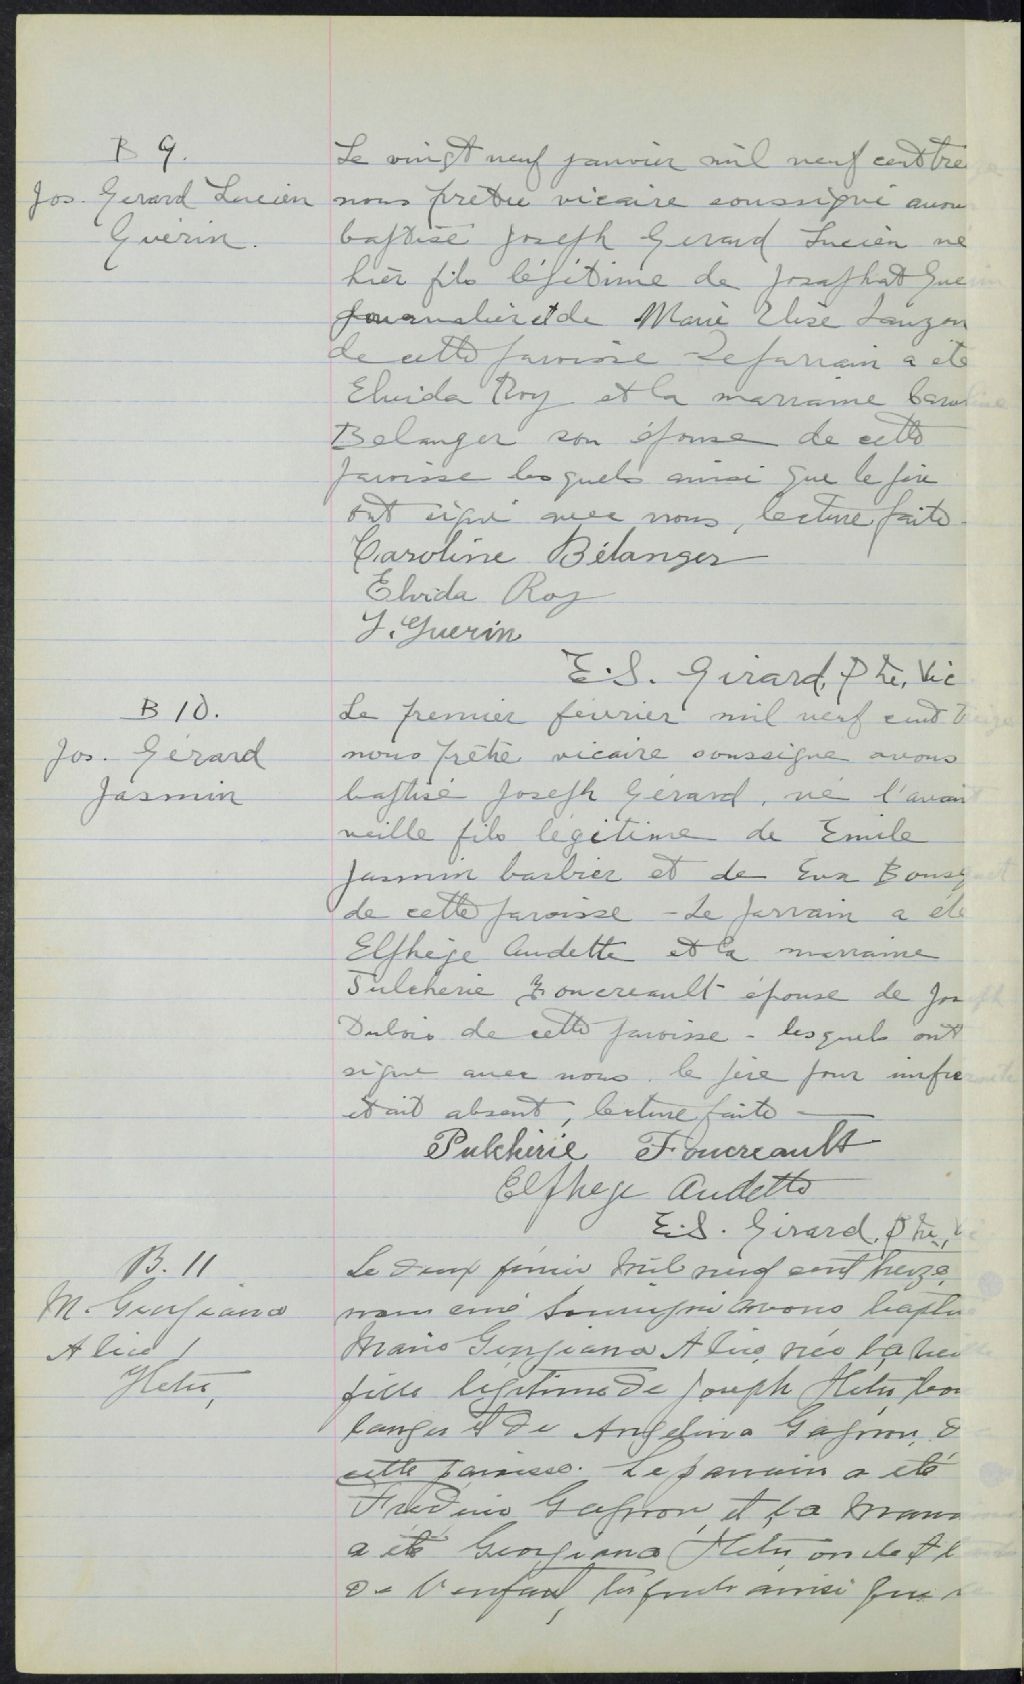 B 9.
Jos. Gerard Lucien
Guérin.
Le vingt neuf janvier mil neuf cent tre
nous prêtre vicaire soussigné avon
baptisé Joseph Gerard Lucien né
hier fils légitime de Josaphat Gue
journalier et de Marie Elise Lauzon
de cette paroisse Le parrain a été
Elvida Roy et la marraine Caroline
Belanger son épouse de cette
paroisse lesquels ainsi que le père
ont signé avec nous, lecture faite.
Caroline Bélanger
Elvida Roy
J. Guerin
E.S. Girard, Ptre, Vic
B 10.
Jos. Gérard
Jasmin
Le premier février mil neuf cent treize
nous prêtre vicaire soussigné avons
baptisé Joseph Gérard, né l'avant
veille fils légitime de Emile
Jasmin barbier et de Eva Bousquet
de cette paroisse - Le parrain a été
Elphège Audette et la marraine
Pulcherie Foucreault épouse de Joseph
Dubois de cette paroisse - lesquels ont
signé avec nous. le père pour
était absent, lecture faite
Pulchérie Foucreault
Elphege Audette
E.S. Girard, Ptre, V
B. 11
M. Georgiana
Alice
Hetu,
Le deux février mil neuf cent treize,
nous curé soussigné avons baptisé
Marie Georgiana Alice, née la veille
fille légitime de Joseph Hetu, bou
langer et de Angelina Gagnon, d
cette paroisse. Le parrain a été
Gagnon et la marraine
a été Georgiana Hetu, oncle et
de l'enfant, lesquels ainsi que